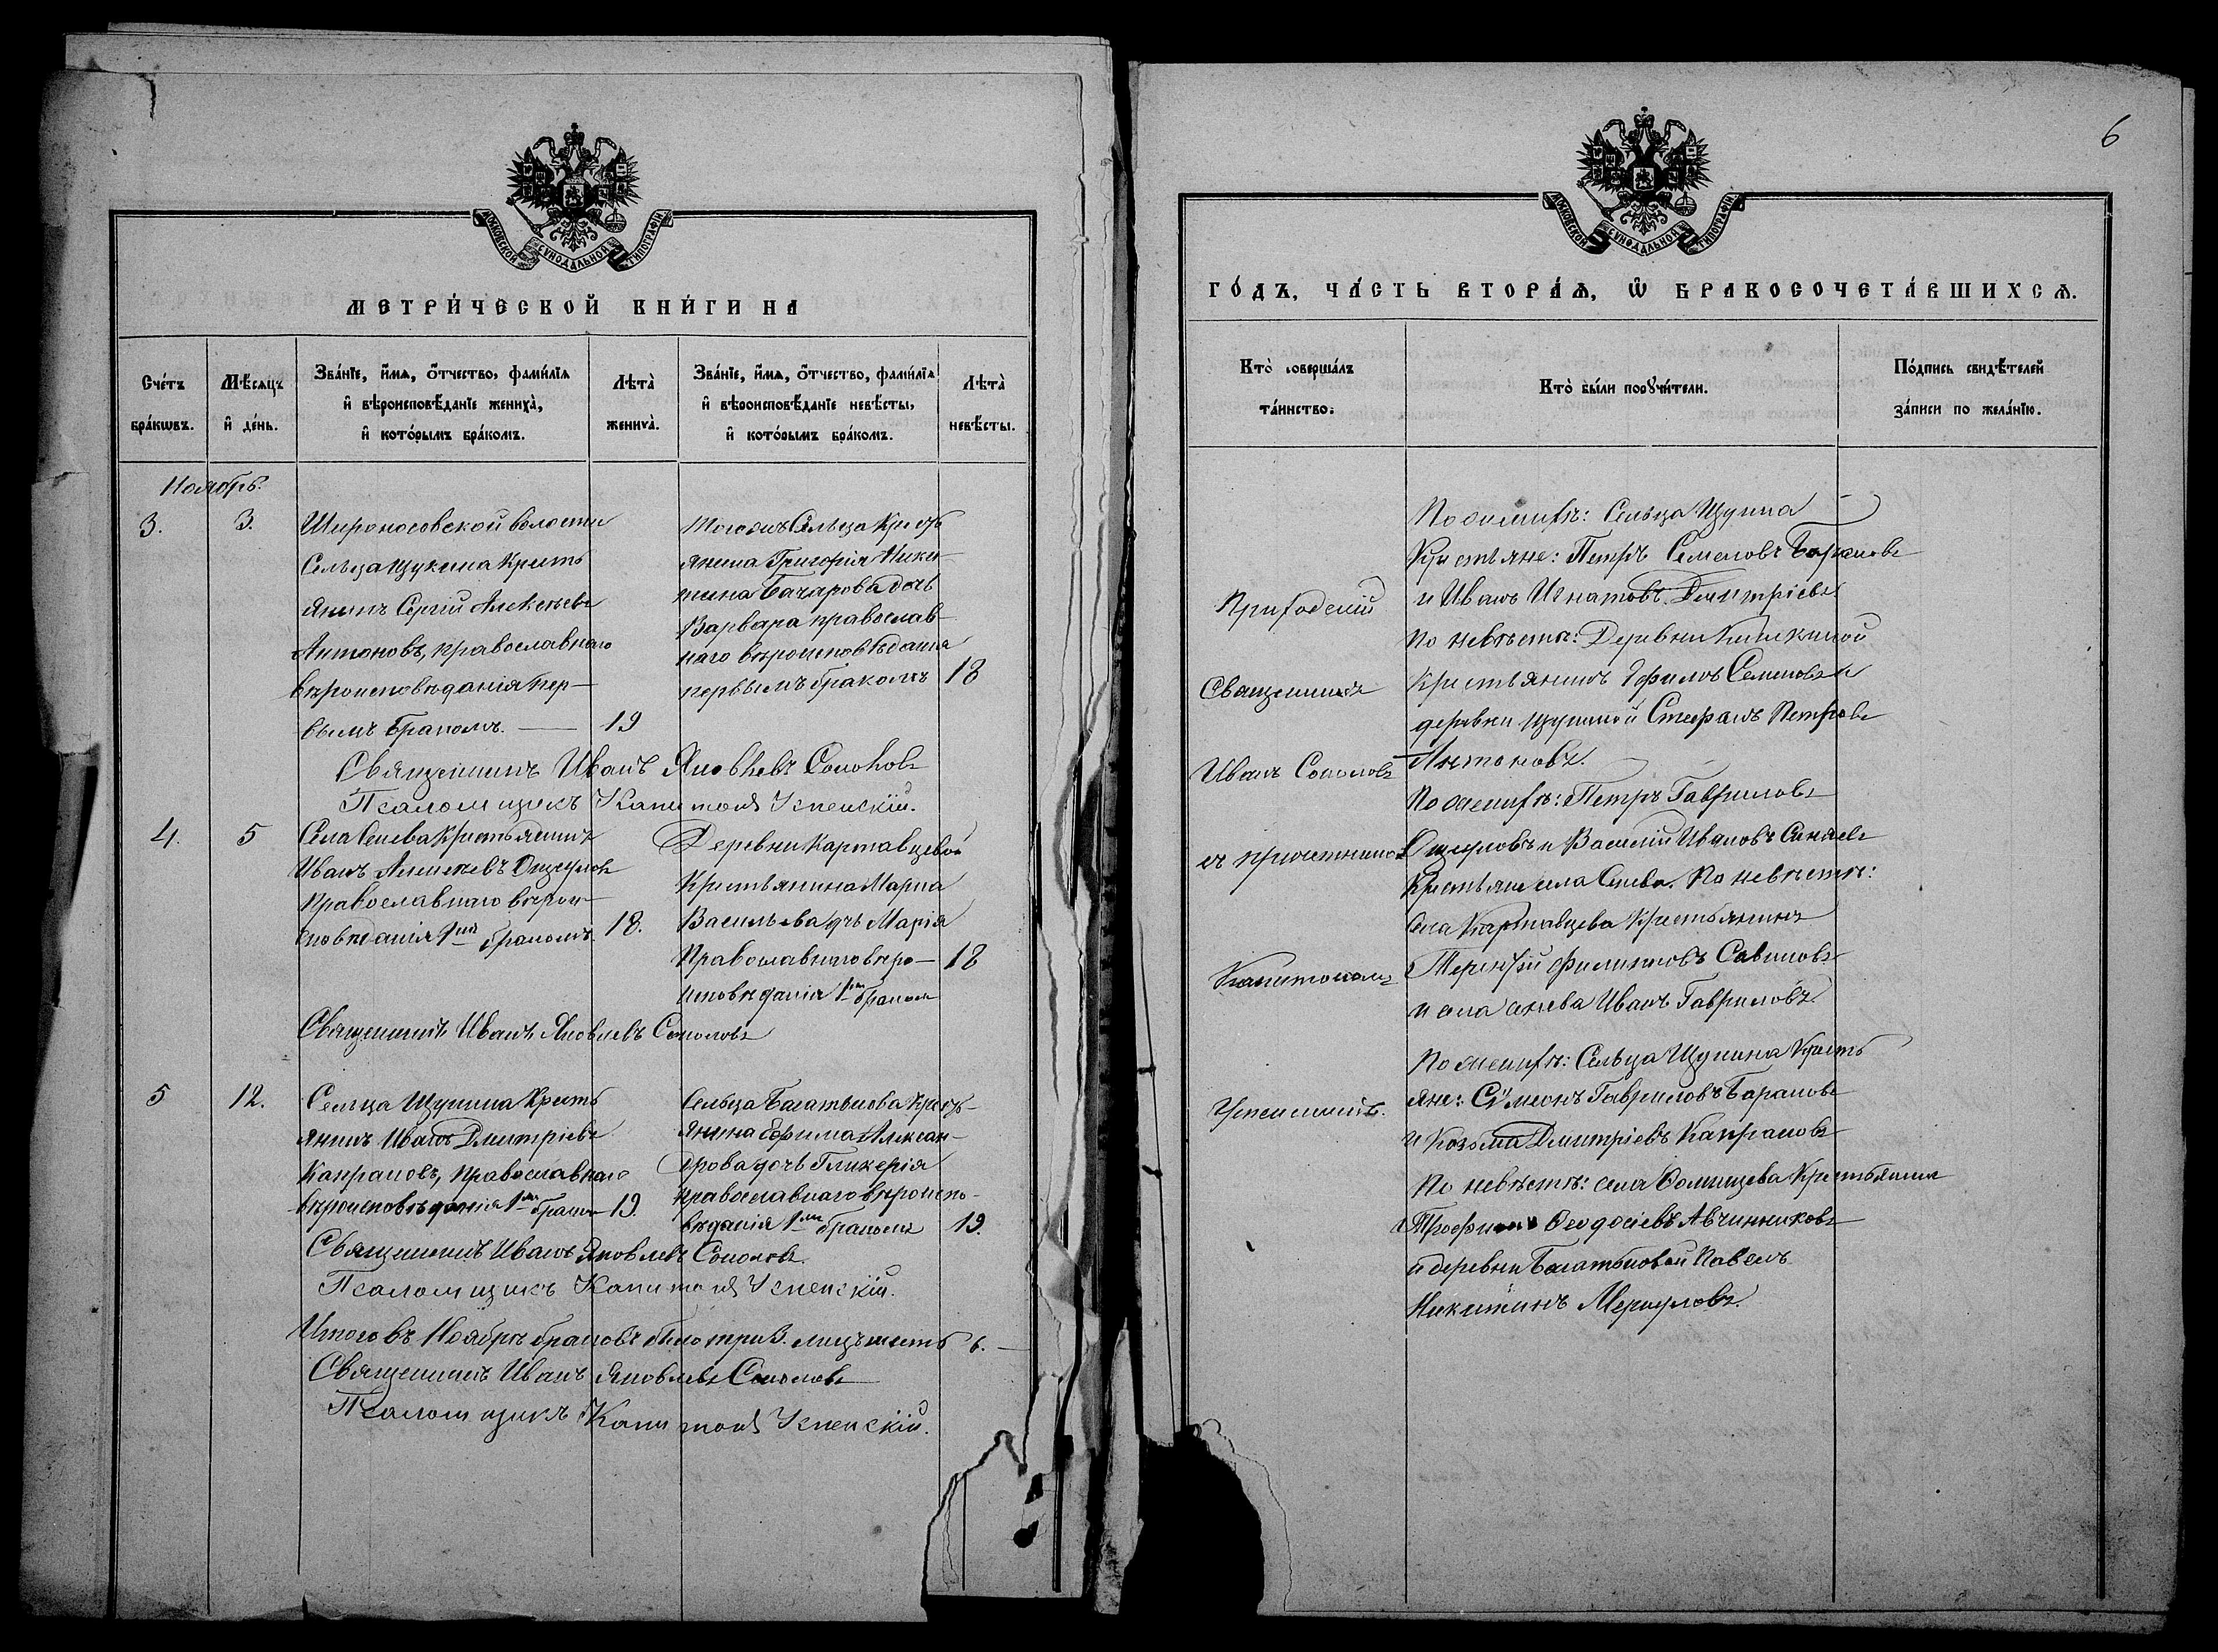 МОСКОВСКОЙ СѴНОДАЛЬНОЙ ТИПОГРАФІИ
МЕТРИ́ЧЕСКОЙ КНИ́ГИ НА
Сче́тъ бра́кѡвъ.
Мѣ́сѧцъ и҆ де́нь.
Зва́нїе, и҆́мѧ, ѻ҆́тчество, фами́лїѧ
и҆ вѣроисповѣ́данїе жениха̀,
и҆ кото́рымъ бра́комъ.
Лѣта̀ жениха̀.
Зва́нїе, и҆́мѧ, ѻ҆́тчество, фами́лїѧ
и҆ вѣроисповѣ́данїе невѣ́сты,
и҆ кото́рымъ бра́комъ.
Лѣта̀ невѣ́сты.
Ноябрь.
3.
3.
Широносовской волости
Сельца Щукина Кресть
янинъ Сергій Алексѣевъ
Антоновъ, православнаго
вѣроисповѣданія пер-
вымъ бракомъ.
19
тогожъ Сельца Кресть
янина Григорія Ники-
тина Бачарова дочь
Варвара православ-
наго вѣроисповѣданія
первымъ бракомъ
18
Священникъ Иванъ Яковлевъ Соколовъ
Псаломщикъ Капитонъ Успенскій.
4.
5
Села Сенева Крестьянинъ
Иванъ Алексѣевъ
Православнаго вѣрои-
сповѣданія 1мъ бракомъ.
18.
Деревни Картавцевой
Крестьянина Марка
Васильева дчь Марія
Православнаго вѣро-
исповѣданія 1мъ бракомъ
18
Священникъ Иванъ Яковлевъ Соколовъ
5
12.
Сельца Щукина Кресть
янинъ Иванъ Дмитріевъ
Капрановъ, православнаго
вѣроисповѣданія 1мъ бракомъ
19.
Сельца Багатькова Кресть-
янина Ефима Алексан-
дрова дочь Гликерія
православнаго вѣроиспо-
вѣданія 1мъ бракомъ
19.
Священникъ Иванъ Яковлевъ Соколовъ.
Псаломщикъ Капитонъ Успенскій.
Итого въ Ноябрѣ браковъ было три 3. лицъ шесть 6.
Священникъ Иванъ Яковлевъ Соколовъ
Псаломщикъ Капитонъ Успенскій.
6
МОСКОВСКОЙ СѴНОДАЛЬНОЙ ТИПОГРАФІИ
ГО́ДЪ, ЧА́СТЬ ВТОРА́Ѧ, Ѽ БРАКОСОЧЕТА́ВШИХСѦ.
Кто̀ соверша́лъ та́инство.
Кто̀ бы́ли порꙋчи́тели.
По́дпись свидѣ́телей
за́писи по жела́нїю.
Приходскій
Священникъ
Иванъ Соколовъ
съ причетникомъ
Капитономъ
Успенскимъ.
По женихѣ: Сельца Щукина
Крестьяне: Петръ Семеновъ Барановъ
и Иванъ Игнатовъ Дмитріевъ
По невѣстѣ: Деревни
Крестьянинъ Ефимъ Семеновъ и
деревни Щукиной Стефанъ Петровъ
Антоновъ.
По женихѣ: Петръ Гавриловъ
и Василій Ивановъ
Крестьяне села Сенева. По невѣстѣ:
Села Картавцева Крестьянинъ
Терентій Филипповъ Савиновъ
и села Сенева Иванъ Гавриловъ.
По женихѣ: Сельца Щукина Кресть
яне: Сѵмеонъ Гавриловъ Барановъ
и Козьма Дмитріевъ Капрановъ
По невѣстѣ: села Крестьянинъ
Трофимъ Ѳеодосіевъ Авчинниковъ
и деревни Багатьковой Павелъ
Никитинъ Меркуловъ.